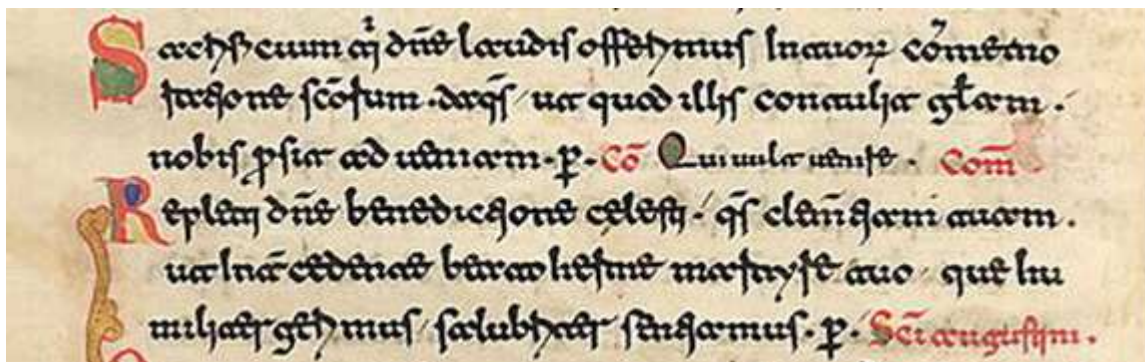 Sacrificium ti̅ dn̅e laudis offerimus In tuoꝝ co̅memo
ratione sc̅orum · da qs̅ / ut quod illis contulit gl̅am ·
nobis ꝓsit ad ueniam · p̲ · Co̅ Qui uult uenire · Com̅
Repleti dn̅e benedictione celesti · qs̅ clem̅tiam tuam ·
ut Int̅cedente beato hermete martyre tuo / que hu
militer gerimus / salubriter sentiamus · p̲ · Sc̅i augustini ·